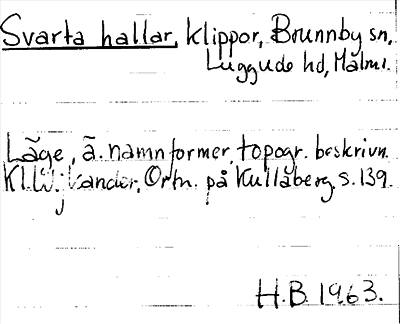 Svarta hallar, klippor, Brunnby sn,
Luggude hd, Malm.
Läge, ä. namnformer, topogr. beskrivn.
Kl. Ortn. på Kullaberg. s. 139.
H.B. 1963.